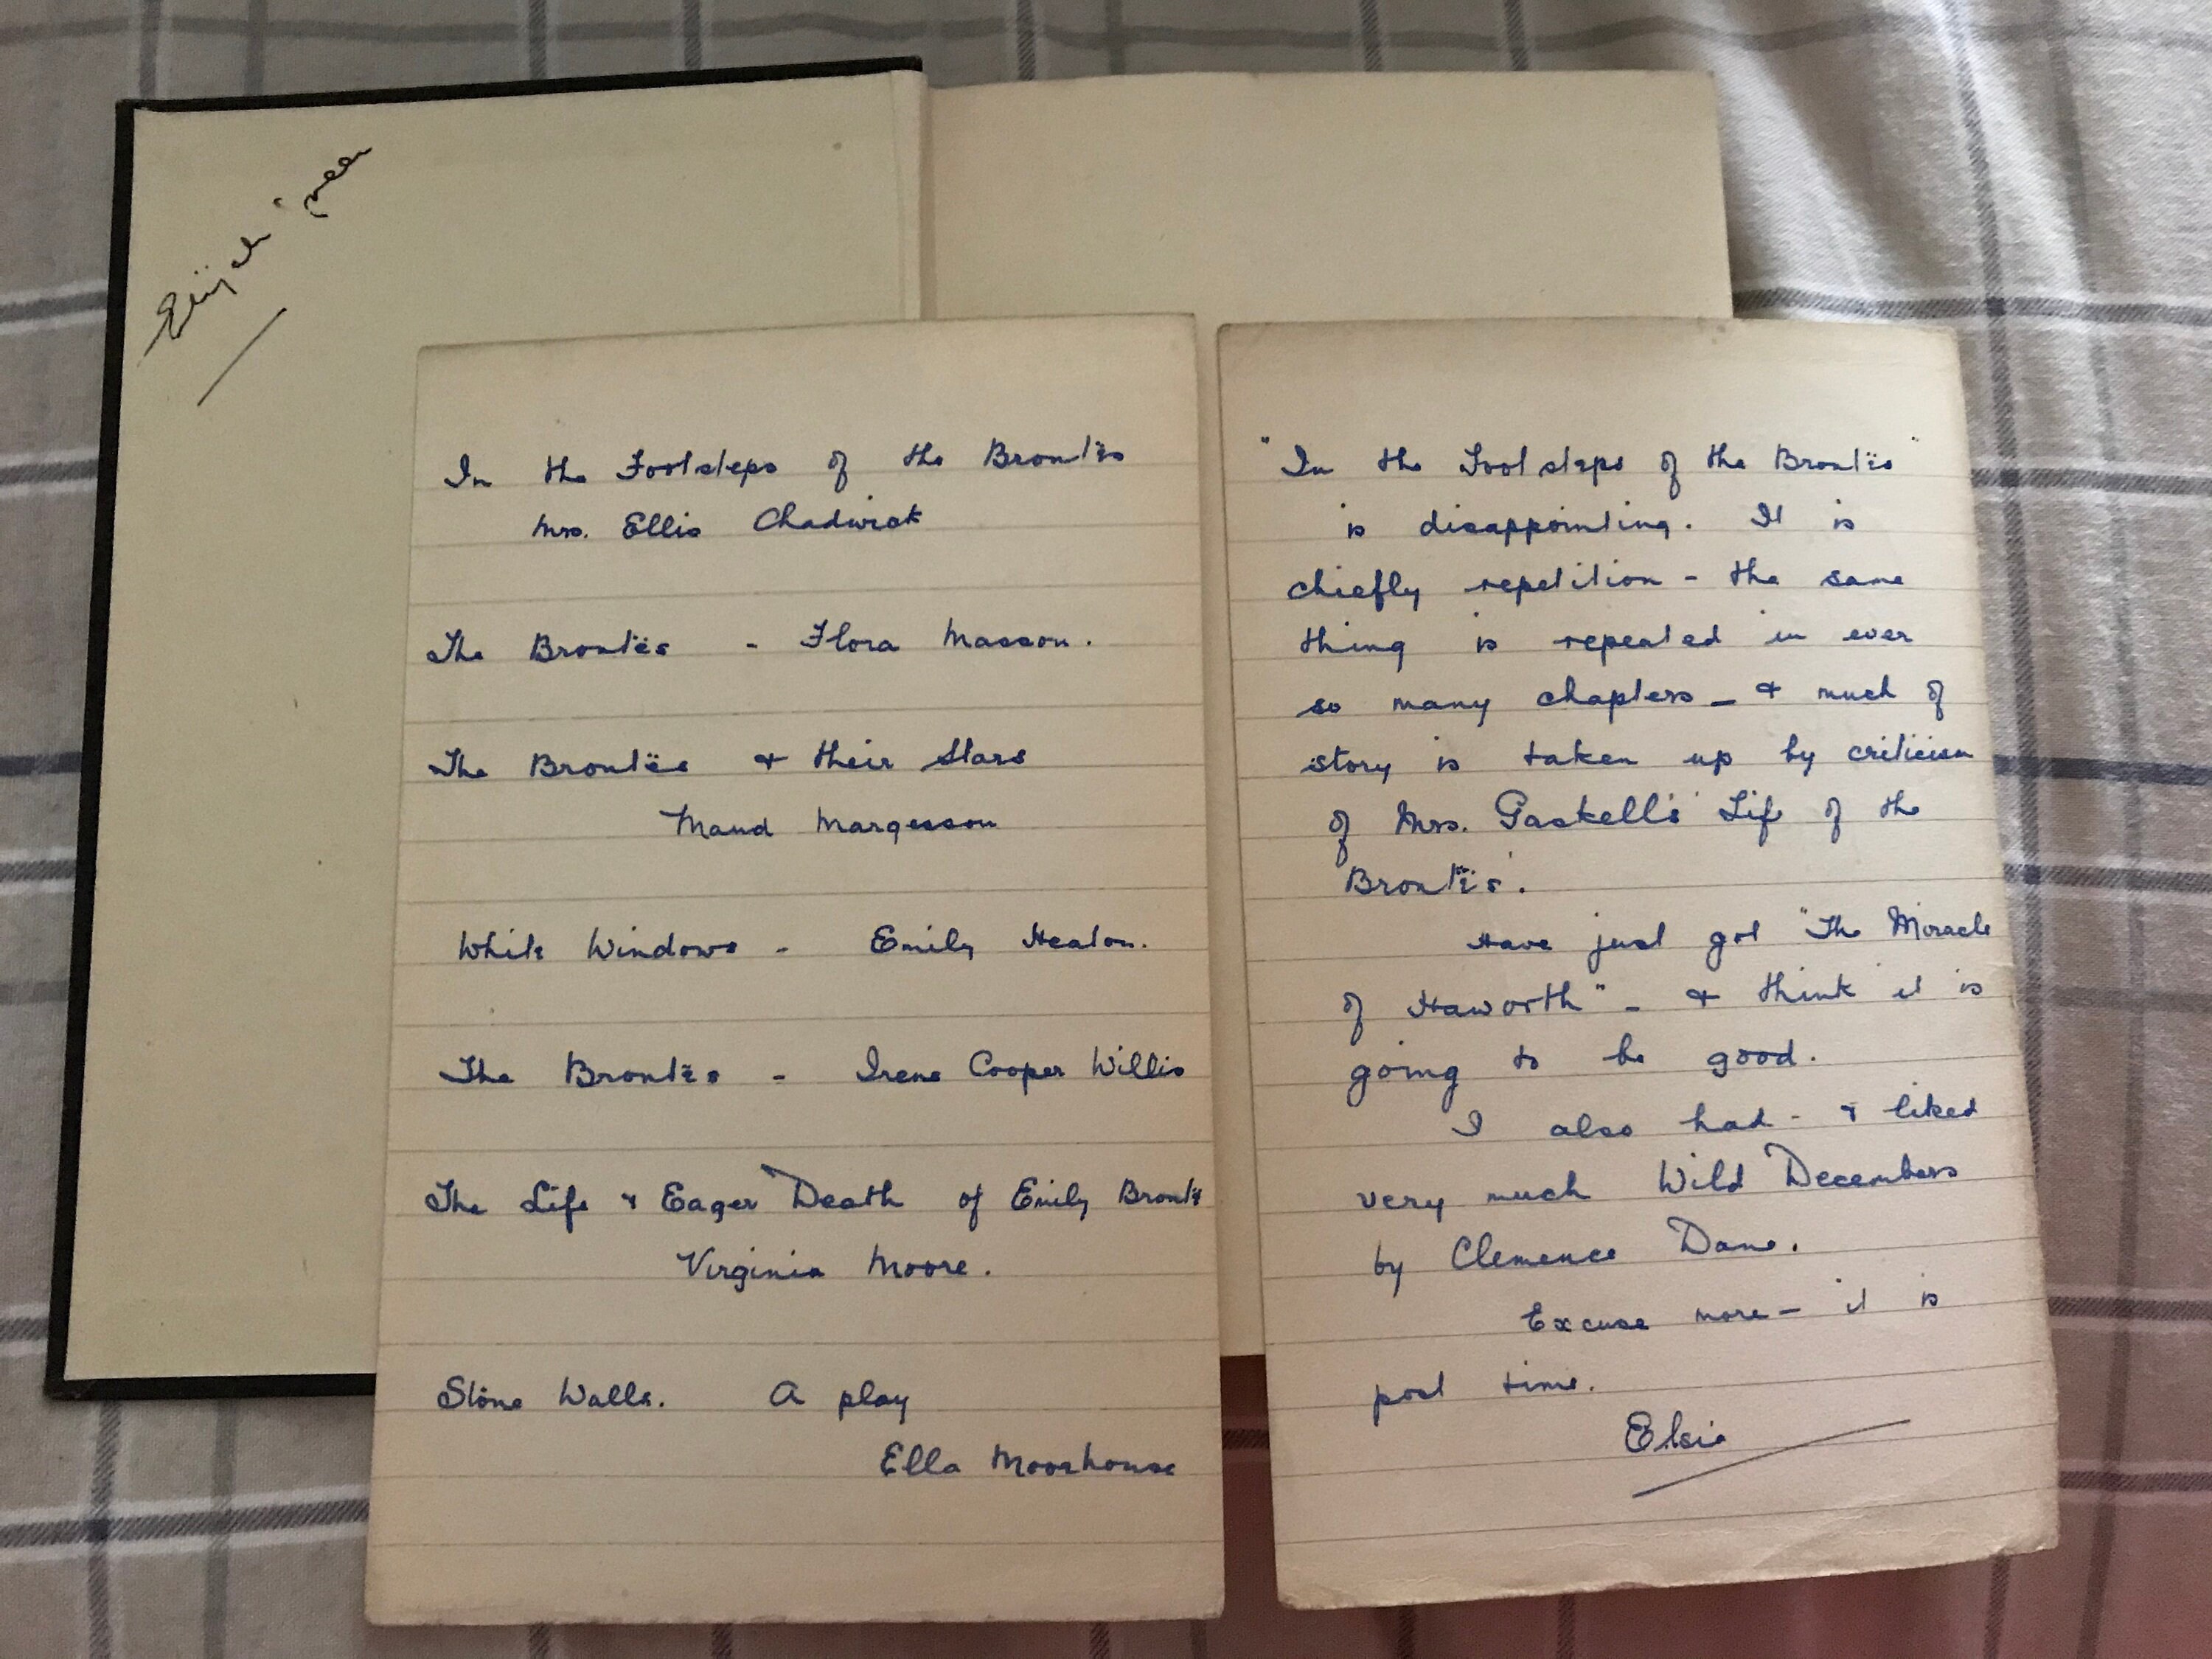 In the Footsteps of the Brontës
Mrs. Ellis Chadwick
The Brontës - Flora Masson.
The Brontës & their Stars
Maud Margesson
White Windows - Emily Heaton.
The Brontës - Irene Cooper Willis
The Life & Eager Death of Emily Brontë
Virginia Moore.
Stone Walls. A play
Ella Moorhouse
"In the Footsteps of the Brontës"
is disappointing. It is
chiefly repetition - the same
thing is repeated in ever
so many chapters - & much of
story is taken up by criticism
of Mrs. Gaskell's 'Life of the
Brontës'.
Have just got "The Miracle
of Haworth" - & think it is
going to be good.
I also had - & liked
very much Wild Decembers
by Clemence Dane.
Excuse more - it is
post time.
Elsie